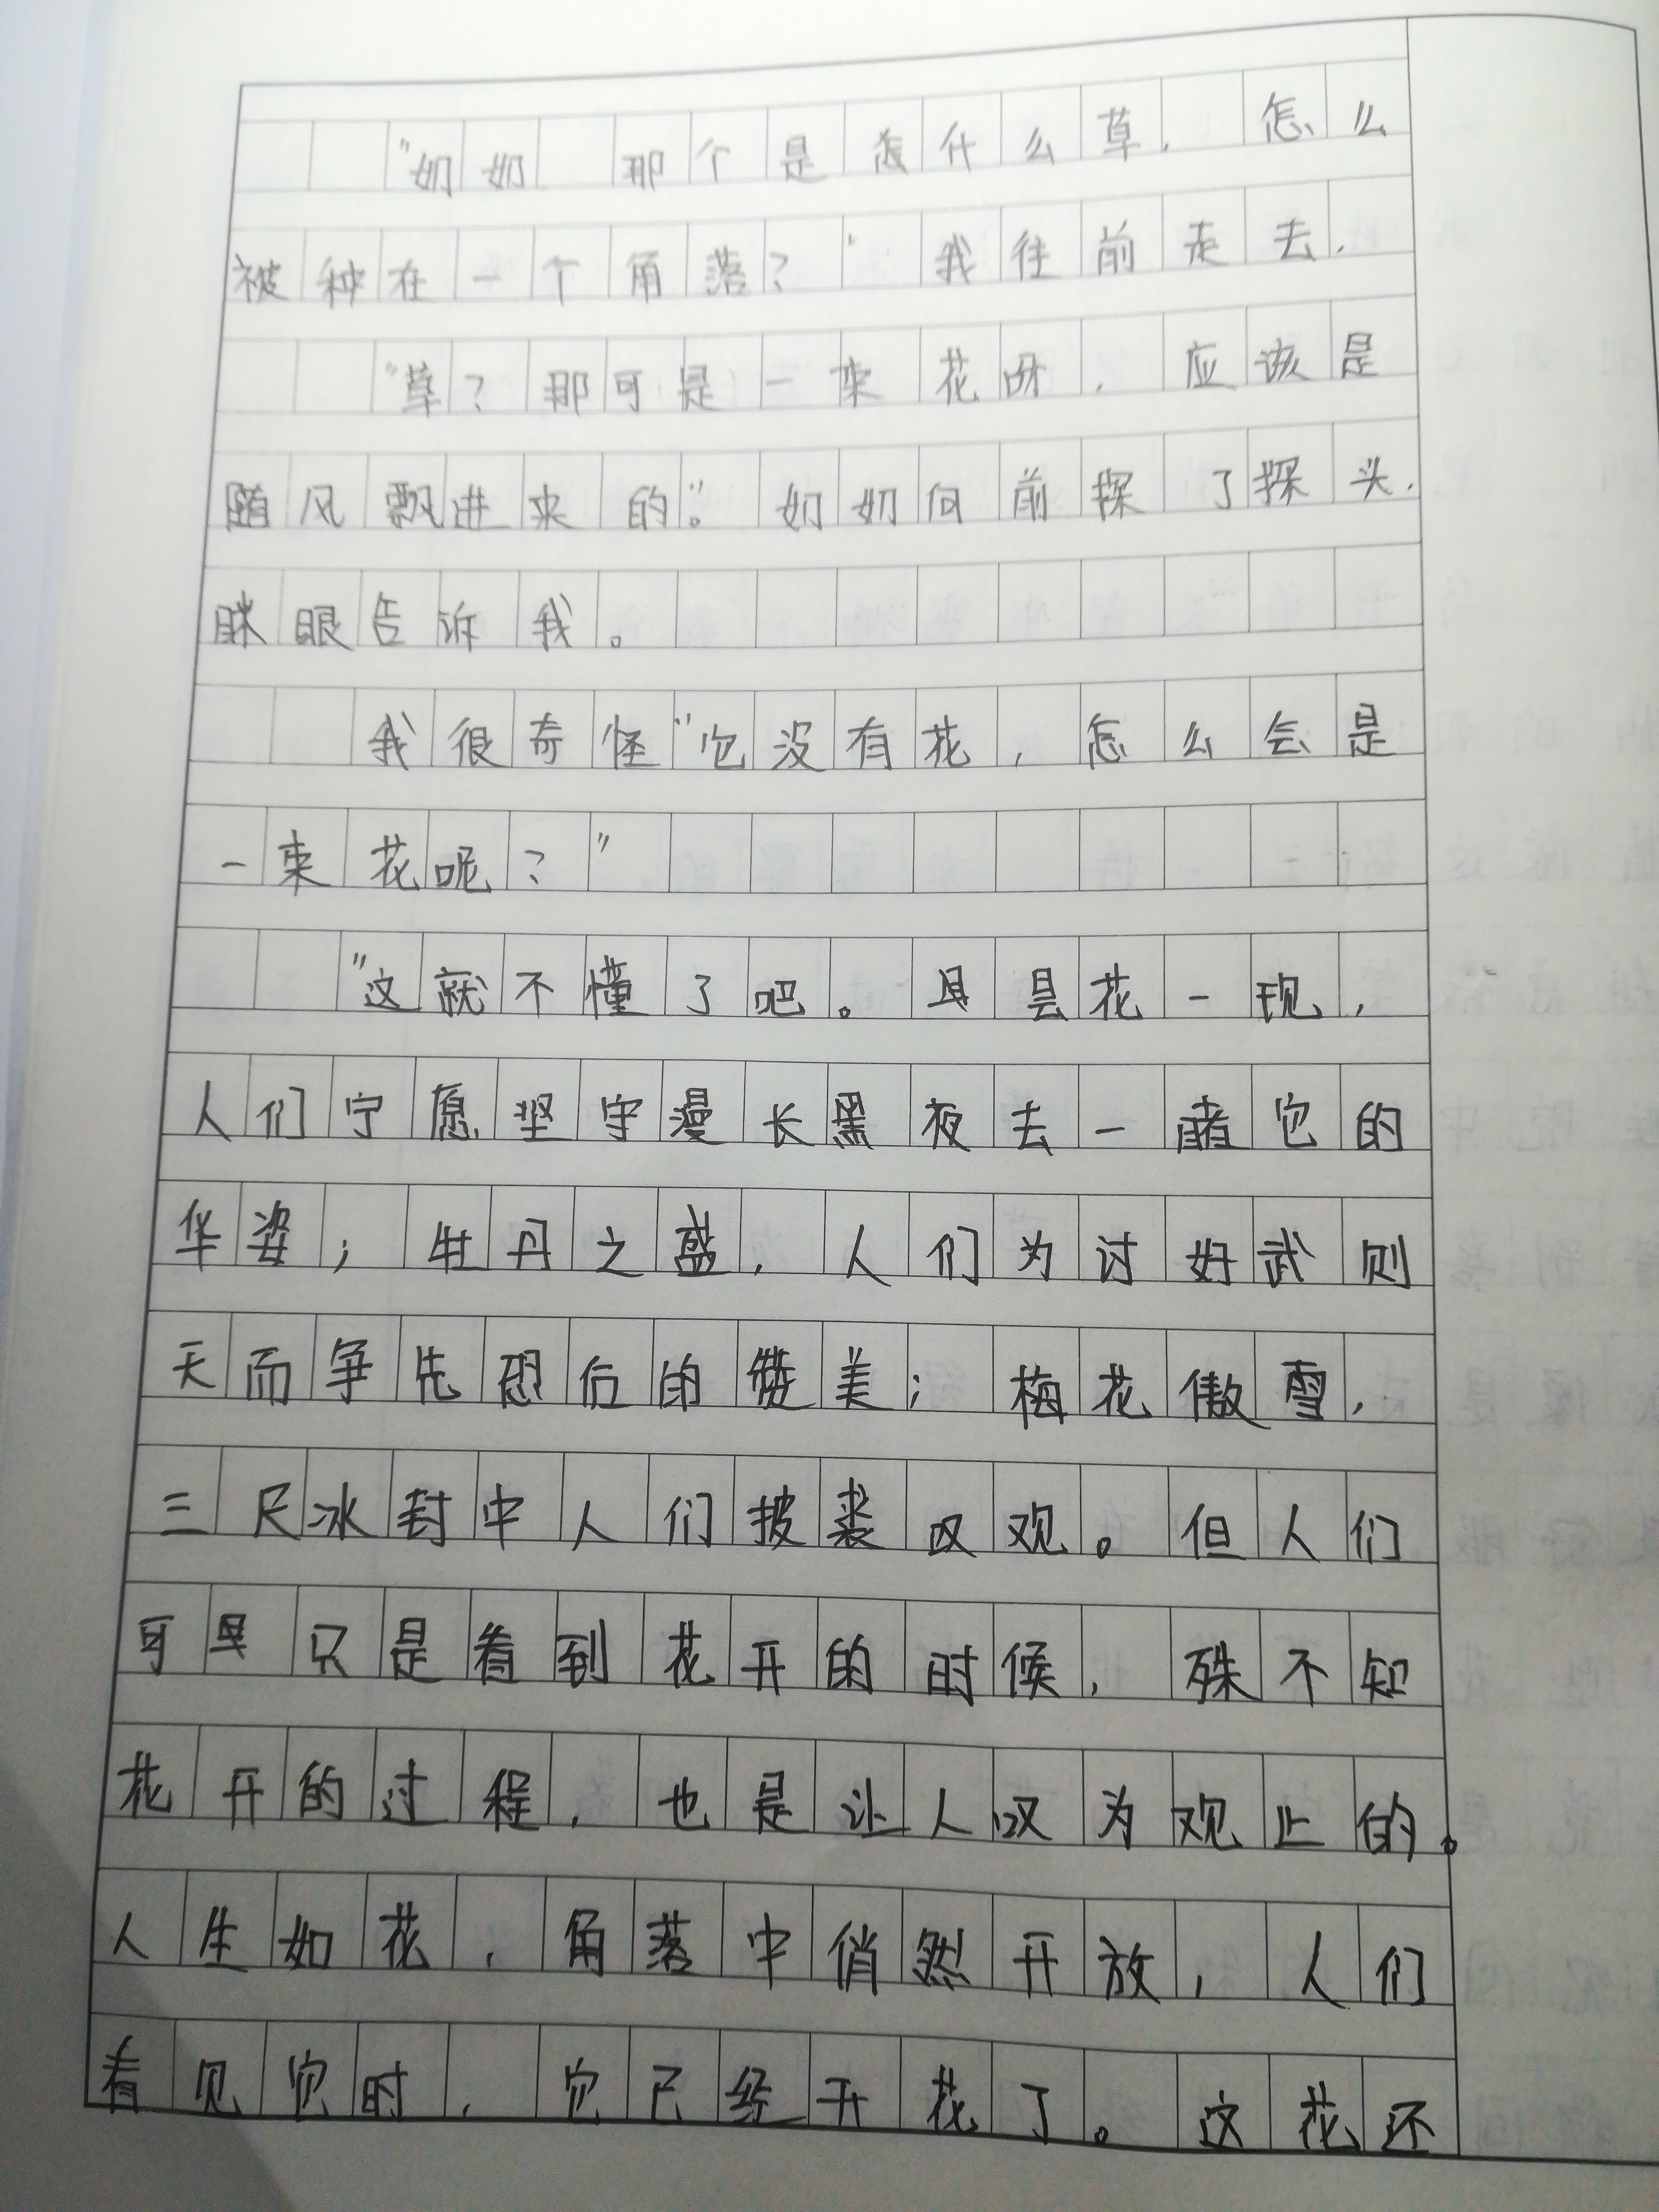 “奶奶 那个是怎什么草，怎么
被种在一个角落？”我往前走去，
“草？那可是一束花呀，应该是
随风飘进来的。”奶奶向前探了探头，
眯眼告诉我。
我很奇怪“它没有花，怎么会是
一束花呢？”
“这就不懂了吧。昙花一现，
人们宁愿坚守漫长黑夜去一睹它的
华姿；牡丹之盛，人们为讨好武则
天而争先恐后的赞美；梅花傲雪，
三尺冰封中人们披裘叹观。但人们
可只是看到花开的时候，殊不知
花开的过程，也是让人叹为观止的。
人生如花，角落中俏然开放，人们
看见它时，它已经开花了。这花还